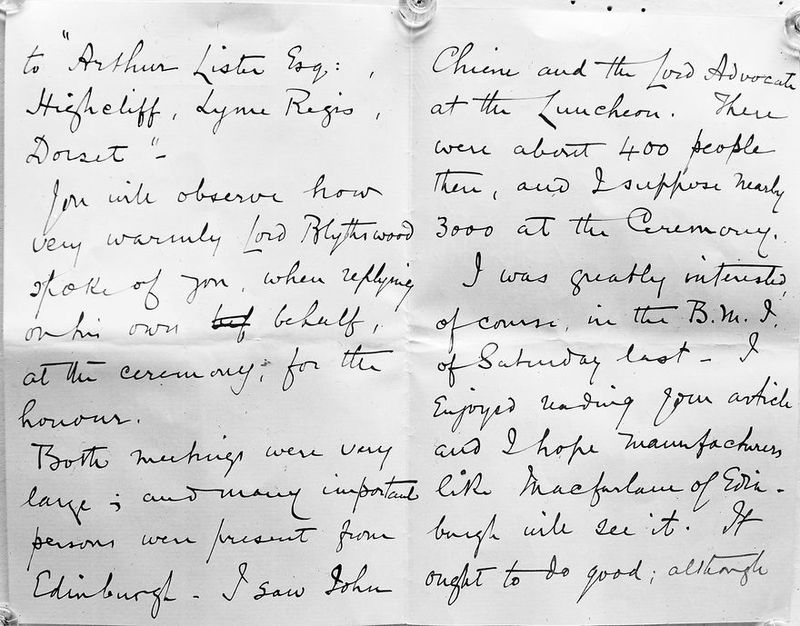 to "Arthur Lister Esq: ,
Highcliff, Lyme Regis ,
Dorset" -
You will observe how
very warmly Lord Blythswood
spoke of you, when replying
on his own bef behalf,
at the ceremony, for the
honour.
Both meetings were very
large ; and many important
persons were present from
Edinburgh - I saw John
Chiene and the Lord Advocate
at the Luncheon. There
were about 400 people
then, and I suppose nearly
3000 at the Ceremony.
I was greatly interested,
of course, in the B.M.J.
of Saturday last - I
Enjoyed reading your article
and I hope manufacturers
like Macfarlane of Edin-
burgh will see it. It
ought to do good; although